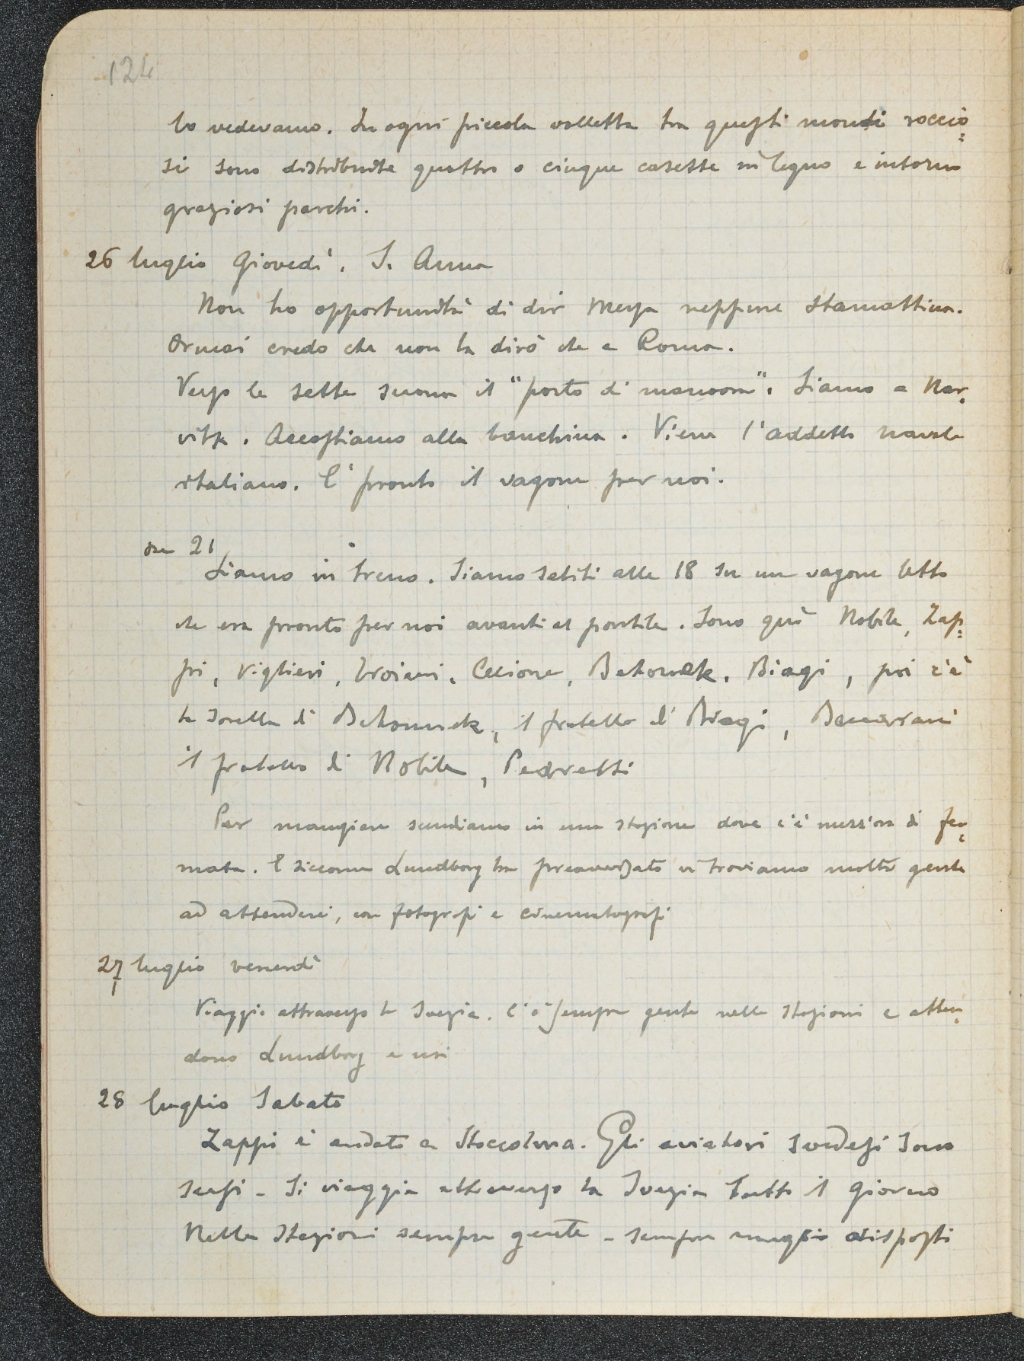 124
lo vedevamo. In ogni piccola valletta tra questi monti roccio=
si sono distribuite quattro o cinque casette in legno e intorno
graziosi parchi.
26 luglio Giovedì. S. Anna
Non ho opportunità di dir Messa neppure stamattina.
Ormai credo che non la dirò che a Roma.
Verso le sette suona il "posto di manovra". Siamo a Nar,
vik. Accostiamo alla banchina. Viene l'addetto navale
italiano. E' pronto il vagone per noi.
ore 21
Siamo in treno. Siamo saliti alle 18 su un vagone letto
che era pronto per noi avanti al pontile. Sono qui Nobile, Zap=
pi, Viglieri, Troiani, Cecioni, Behounek, Biagi, poi c'è
la sorella di Behounek, il fratello di Biagi, Baccarani
il fratello di Nobile, Pedretti
Per mangiare scendiamo in una stazione dove c'è mezz'ora di fer=
mata. E siccome Lundborg ha preavvisato vi troviamo molta gente
ad attenderci, con fotografi e cinematografi
27 luglio venerdì
Viaggio attraverso la Svezia. C'è sempre gente nelle stazioni e atten,
dono Lundborg e noi
28 luglio Sabato
Zappi è andato a Stoccolma. Gli aviatori svedesi sono
scesi - Si viaggia attraverso la Svezia tutto il giorno
Nelle stazioni sempre gente - sempre meglio disposti